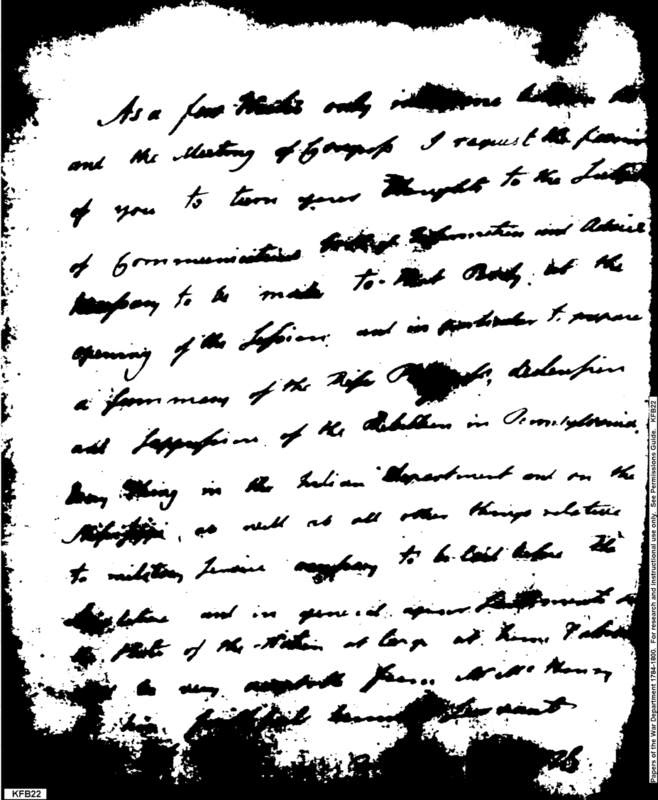 As a few Weeks only intervene between
and the Meeting of Congress I request the favour
of you to turn your Thoughts to the
of Communications both of Information and Advice
necessary to be made to that Body, at the
opening of the Session and in particular to prepare
a summary of the Rise Progress, declension
and Suppression of the Rebellion in Pennsylvania.
Every Thing in the Indian Department and on the
Mississippi, as well as all other things relative
to military Service necessary to be laid before the
Legislature and in general your Sentiments
the State of the Nation at large at home
be very acceptable from Mr McHenry
his faithful humble Servant
KFB22
Papers of the War Department 1784-1800. For research and instructional use only. See Permissions Guide. KFB22